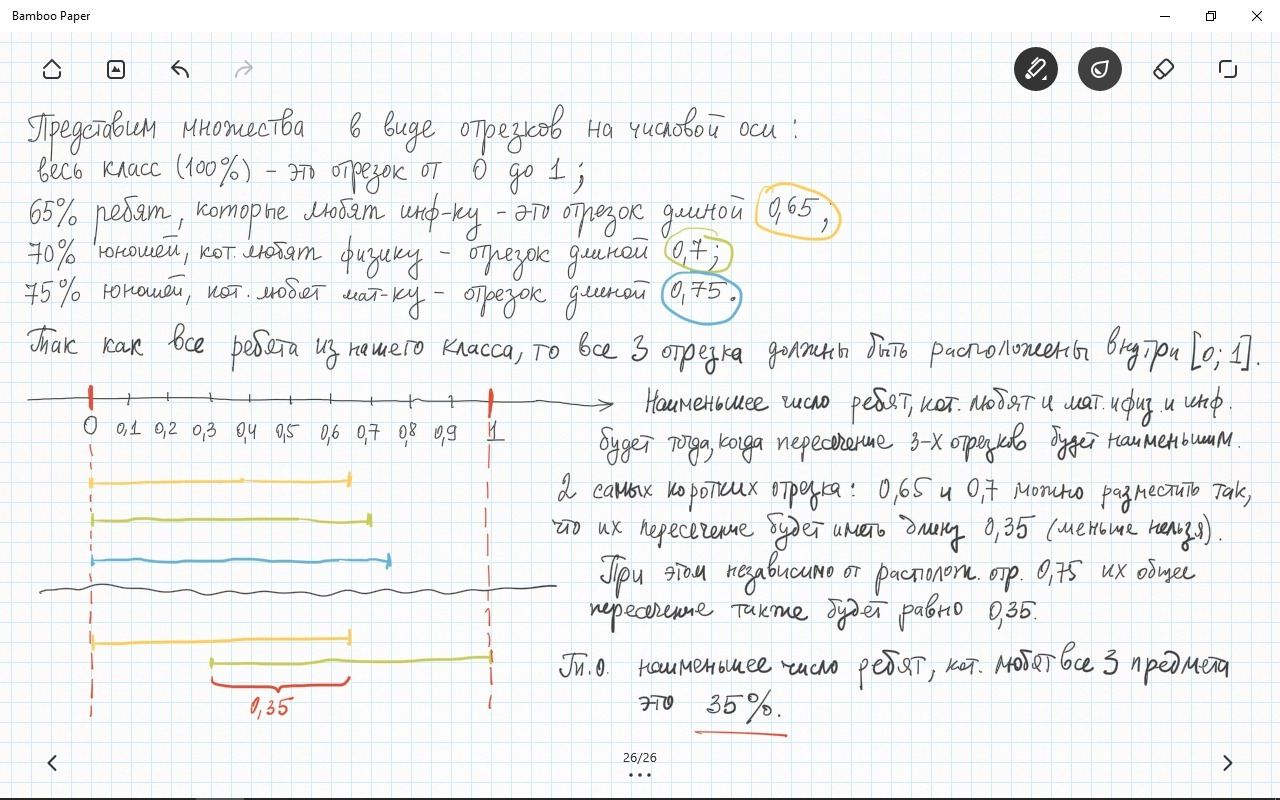 Bamboo Paper
Представим множества в виде отрезков на числовой оси :
весь класс (100%) - это отрезок от 0 до 1 ;
65% ребят, которые любят инф-ку - это отрезок длиной 0,65 ;
70% юношей, кот. любят физику - отрезок длиной 0,7 ;
75% юношей, кот. любят мат-ку - отрезок длиной 0,75 .
Так как все ребята из нашего класса, то все 3 отрезка должны быть расположены внутри [0; 1] .
0 0,1 0,2 0,3 0,4 0,5 0,6 0,7 0,8 0,9 1
0,35
Наименьшее число ребят, кот. любят и мат. и физ. и инф.
будет тогда, когда пересечение 3-х отрезков будет наименьшим.
2 самых коротких отрезка : 0,65 и 0,7 можно разместить так,
что их пересечение будет иметь длину 0,35 (меньше нельзя).
При этом независимо от располож. отр. 0,75 их общее
пересечение также будет равно 0,35.
Т.О. наименьшее число ребят, кот. любят все 3 предмета
это 35%.
26/26